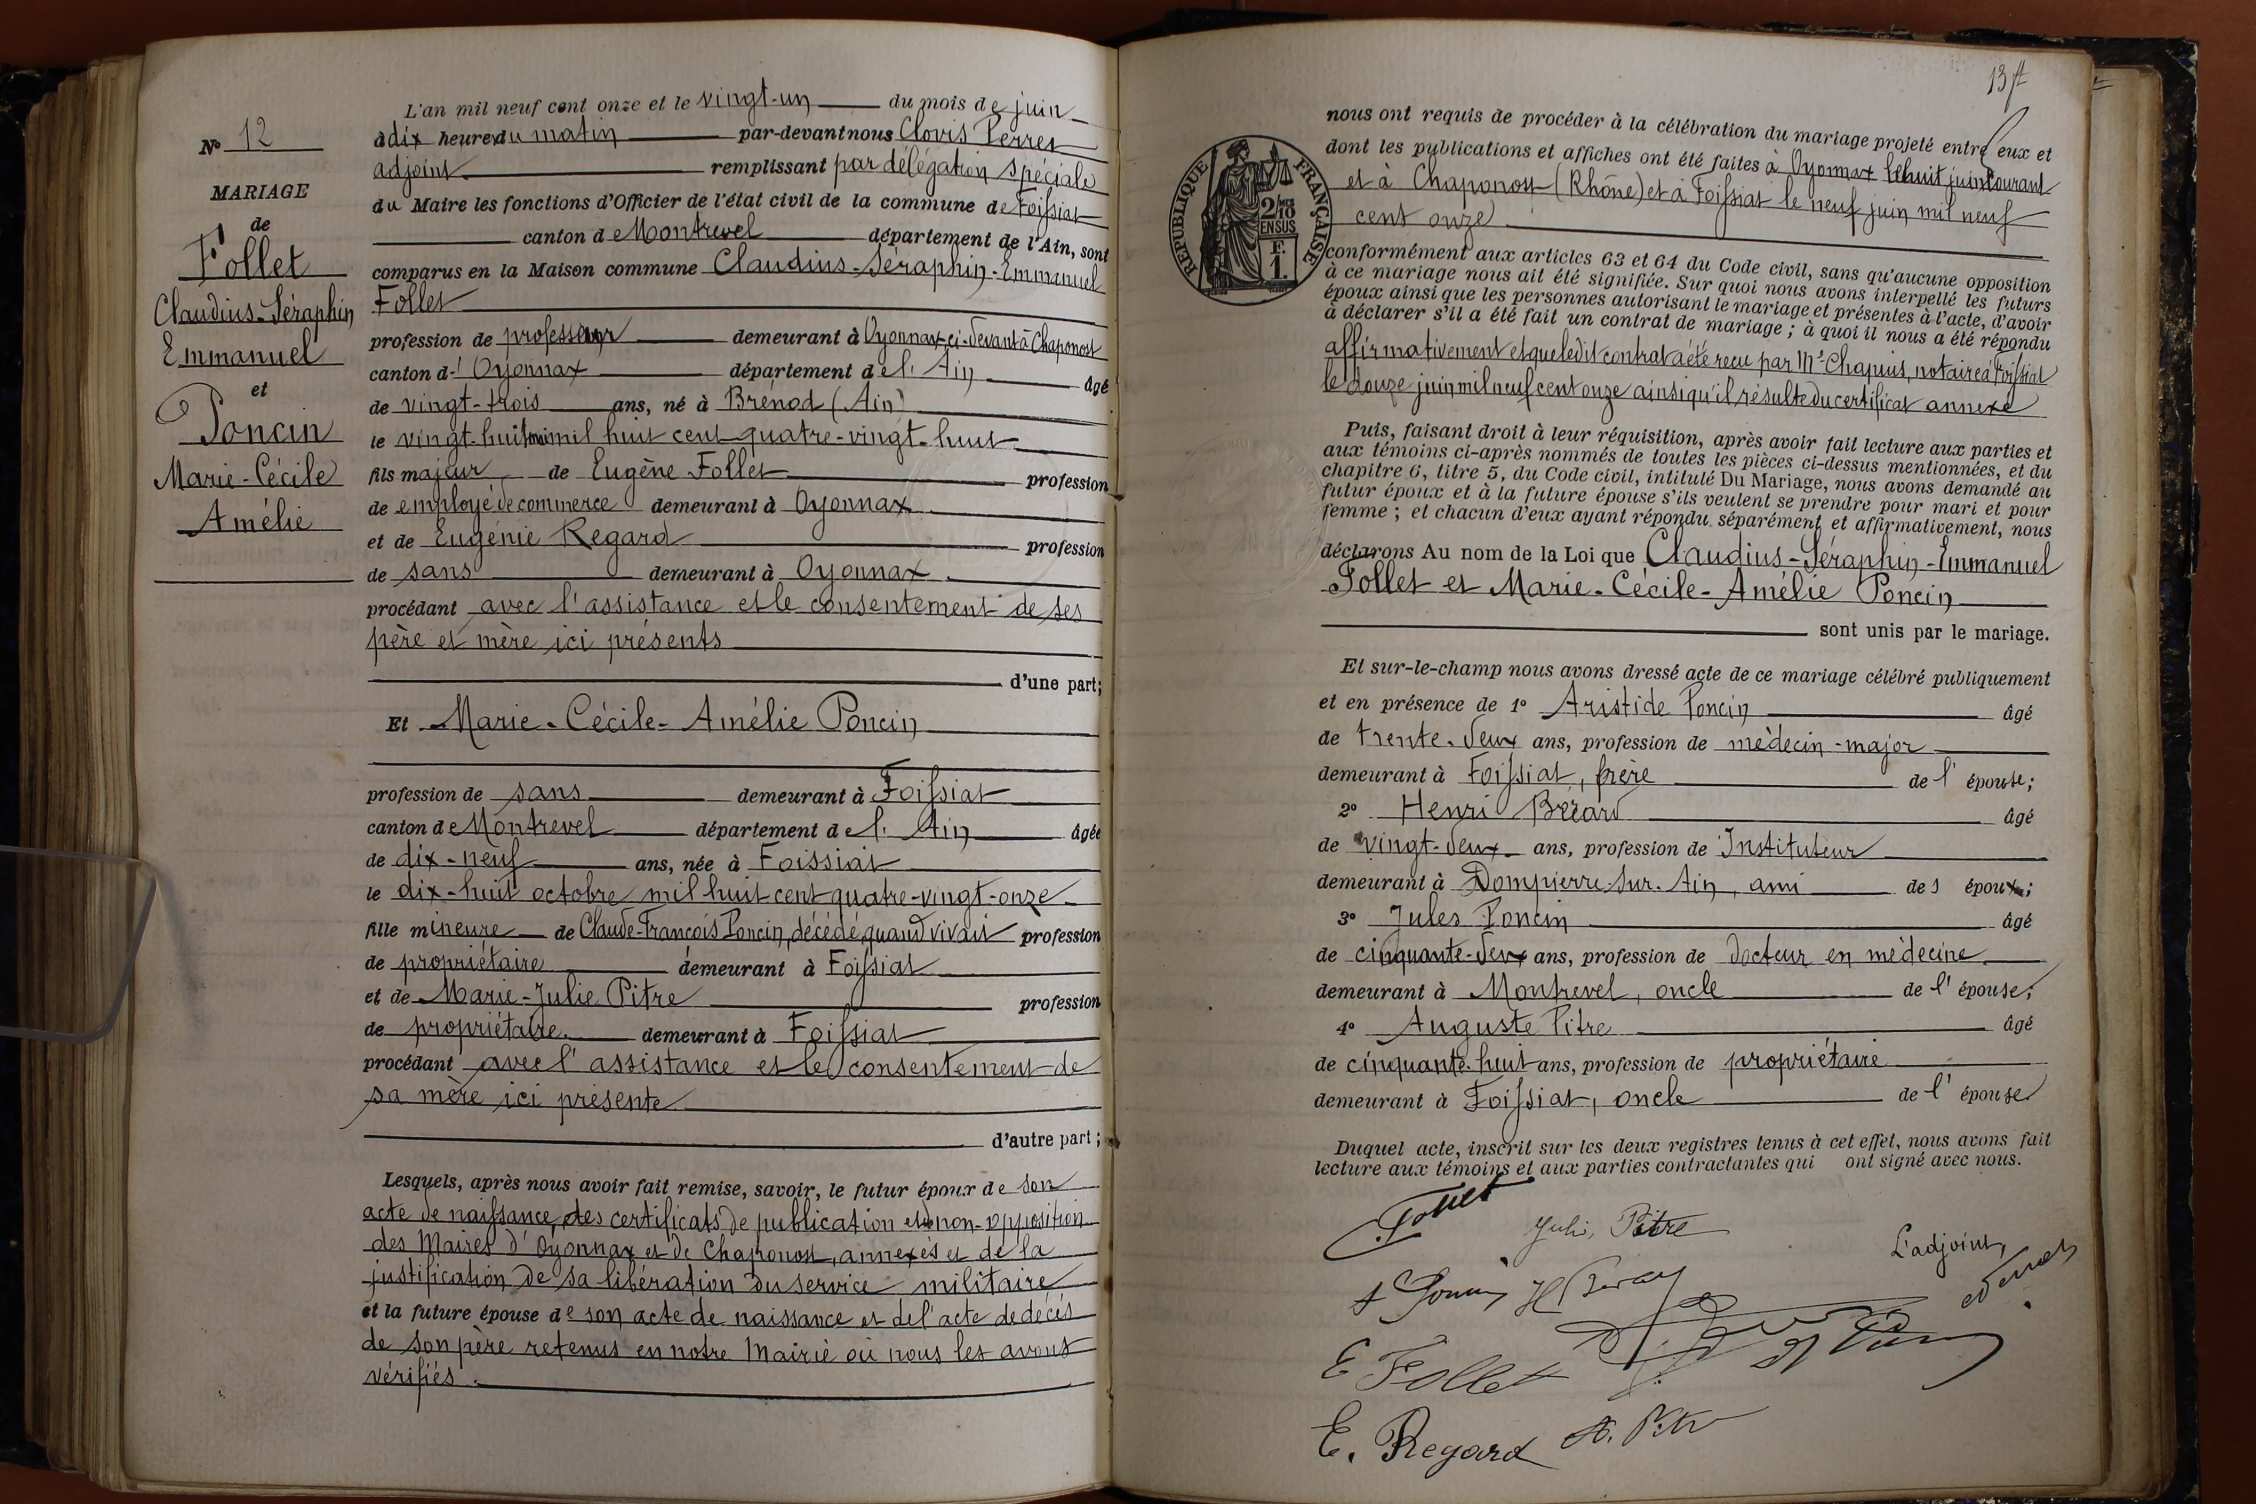 L'an mil neuf cent onze et le vingt-un du mois de juin
à dix heures du matin par-devant nous Clovis Perret
adjoint remplissant par délégation spéciale
du Maire les fonctions d'Officier de l'état civil de la commune de Foissiat
canton de Montrevel département de l'Ain, sont
comparus en la Maison commune Claudius-Séraphin-Emmanuel
Follet
profession de professeur demeurant à Oyonnax, ci-devant à Chaponost
canton d' Oyonnax département de l'Ain âgé
de vingt-trois ans, né à Brénod (Ain)
le vingt-huit mai mil huit cent quatre-vingt-huit
fils majeur de Eugène Follet profession
de employé de commerce demeurant à Oyonnax
et de Eugénie Regard profession
de sans demeurant à Oyonnax
procédant avec l'assistance et le consentement de ses
père et mère ici présents
d'une part;
Et Marie-Cécile-Amélie Poncin
profession de sans demeurant à Foissiat
canton de Montrevel département de l'Ain âgée
de dix-neuf ans, née à Foissiat
le dix-huit octobre mil huit cent quatre-vingt-onze
fille mineure de Claude-François Poncin, décédé, quand vivait profession
de propriétaire demeurant à Foissiat
et de Marie-Julie Pitre profession
de propriétaire demeurant à Foissiat
procédant avec l'assistance et le consentement de
sa mère ici présente
d'autre part;
Lesquels, après nous avoir fait remise, savoir, le futur époux de son
acte de naissance, des certificats de publication et de non-opposition
des Maires d'Oyonnax et de Chaponost, annexés et de la
justification de sa libération du service militaire
et la future épouse de son acte de naissance et de l'acte de décès
de son père retenus en notre Mairie où nous les avons
vérifiés.
No 12
MARIAGE
de
Follet
Claudius-Séraphin
Emmanuel
et
Poncin
Marie-Cécile
Amélie
nous ont requis de procéder à la célébration du mariage projeté entre eux et
dont les publications et affiches ont été faites à Oyonnax le huit juin courant
et à Chaponost (Rhône) et à Foissiat le neuf juin mil neuf
cent onze
RÉPUBLIQUE FRANÇAISE
2/10
EN SUS
F.
1.
conformément aux articles 63 et 64 du Code civil, sans qu'aucune opposition
à ce mariage nous ait été signifiée. Sur quoi nous avons interpellé les futurs
époux ainsi que les personnes autorisant le mariage et présentes à l'acte, d'avoir
à déclarer s'il a été fait un contrat de mariage; à quoi il nous a été répondu
affirmativement et que ledit contrat a été reçu par Me Chapuis, notaire à Foissiat
le douze juin mil neuf cent onze ainsi qu'il résulte du certificat annexé
Puis, faisant droit à leur réquisition, après avoir fait lecture aux parties et
aux témoins ci-après nommés de toutes les pièces ci-dessus mentionnées, et du
chapitre 6, titre 5, du Code civil, intitulé Du Mariage, nous avons demandé au
futur époux et à la future épouse s'ils veulent se prendre pour mari et pour
femme; et chacun d'eux ayant répondu séparément et affirmativement, nous
déclarons Au nom de la Loi que Claudius-Séraphin-Emmanuel
Follet et Marie-Cécile-Amélie Poncin
sont unis par le mariage.
Et sur-le-champ nous avons dressé acte de ce mariage célébré publiquement
et en présence de 1° Aristide Poncin âgé
de trente-deux ans, profession de médecin-major
demeurant à Foissiat, frère de l'épouse;
2° Henri Bérard âgé
de vingt-deux ans, profession de Instituteur
demeurant à Dompierre-sur-Ain, ami des époux;
3° Jules Poncin âgé
de cinquante-deux ans, profession de docteur en médecine
demeurant à Montrevel, oncle de l'épouse;
4° Auguste Pitre âgé
de cinquante-huit ans, profession de propriétaire
demeurant à Foissiat, oncle de l'épouse
Duquel acte, inscrit sur les deux registres tenus à cet effet, nous avons fait
lecture aux témoins et aux parties contractantes qui ont signé avec nous.
Follet
Julie Pitre
L'adjoint,
A Poncin
E Follet
E. Regard A. Pitre